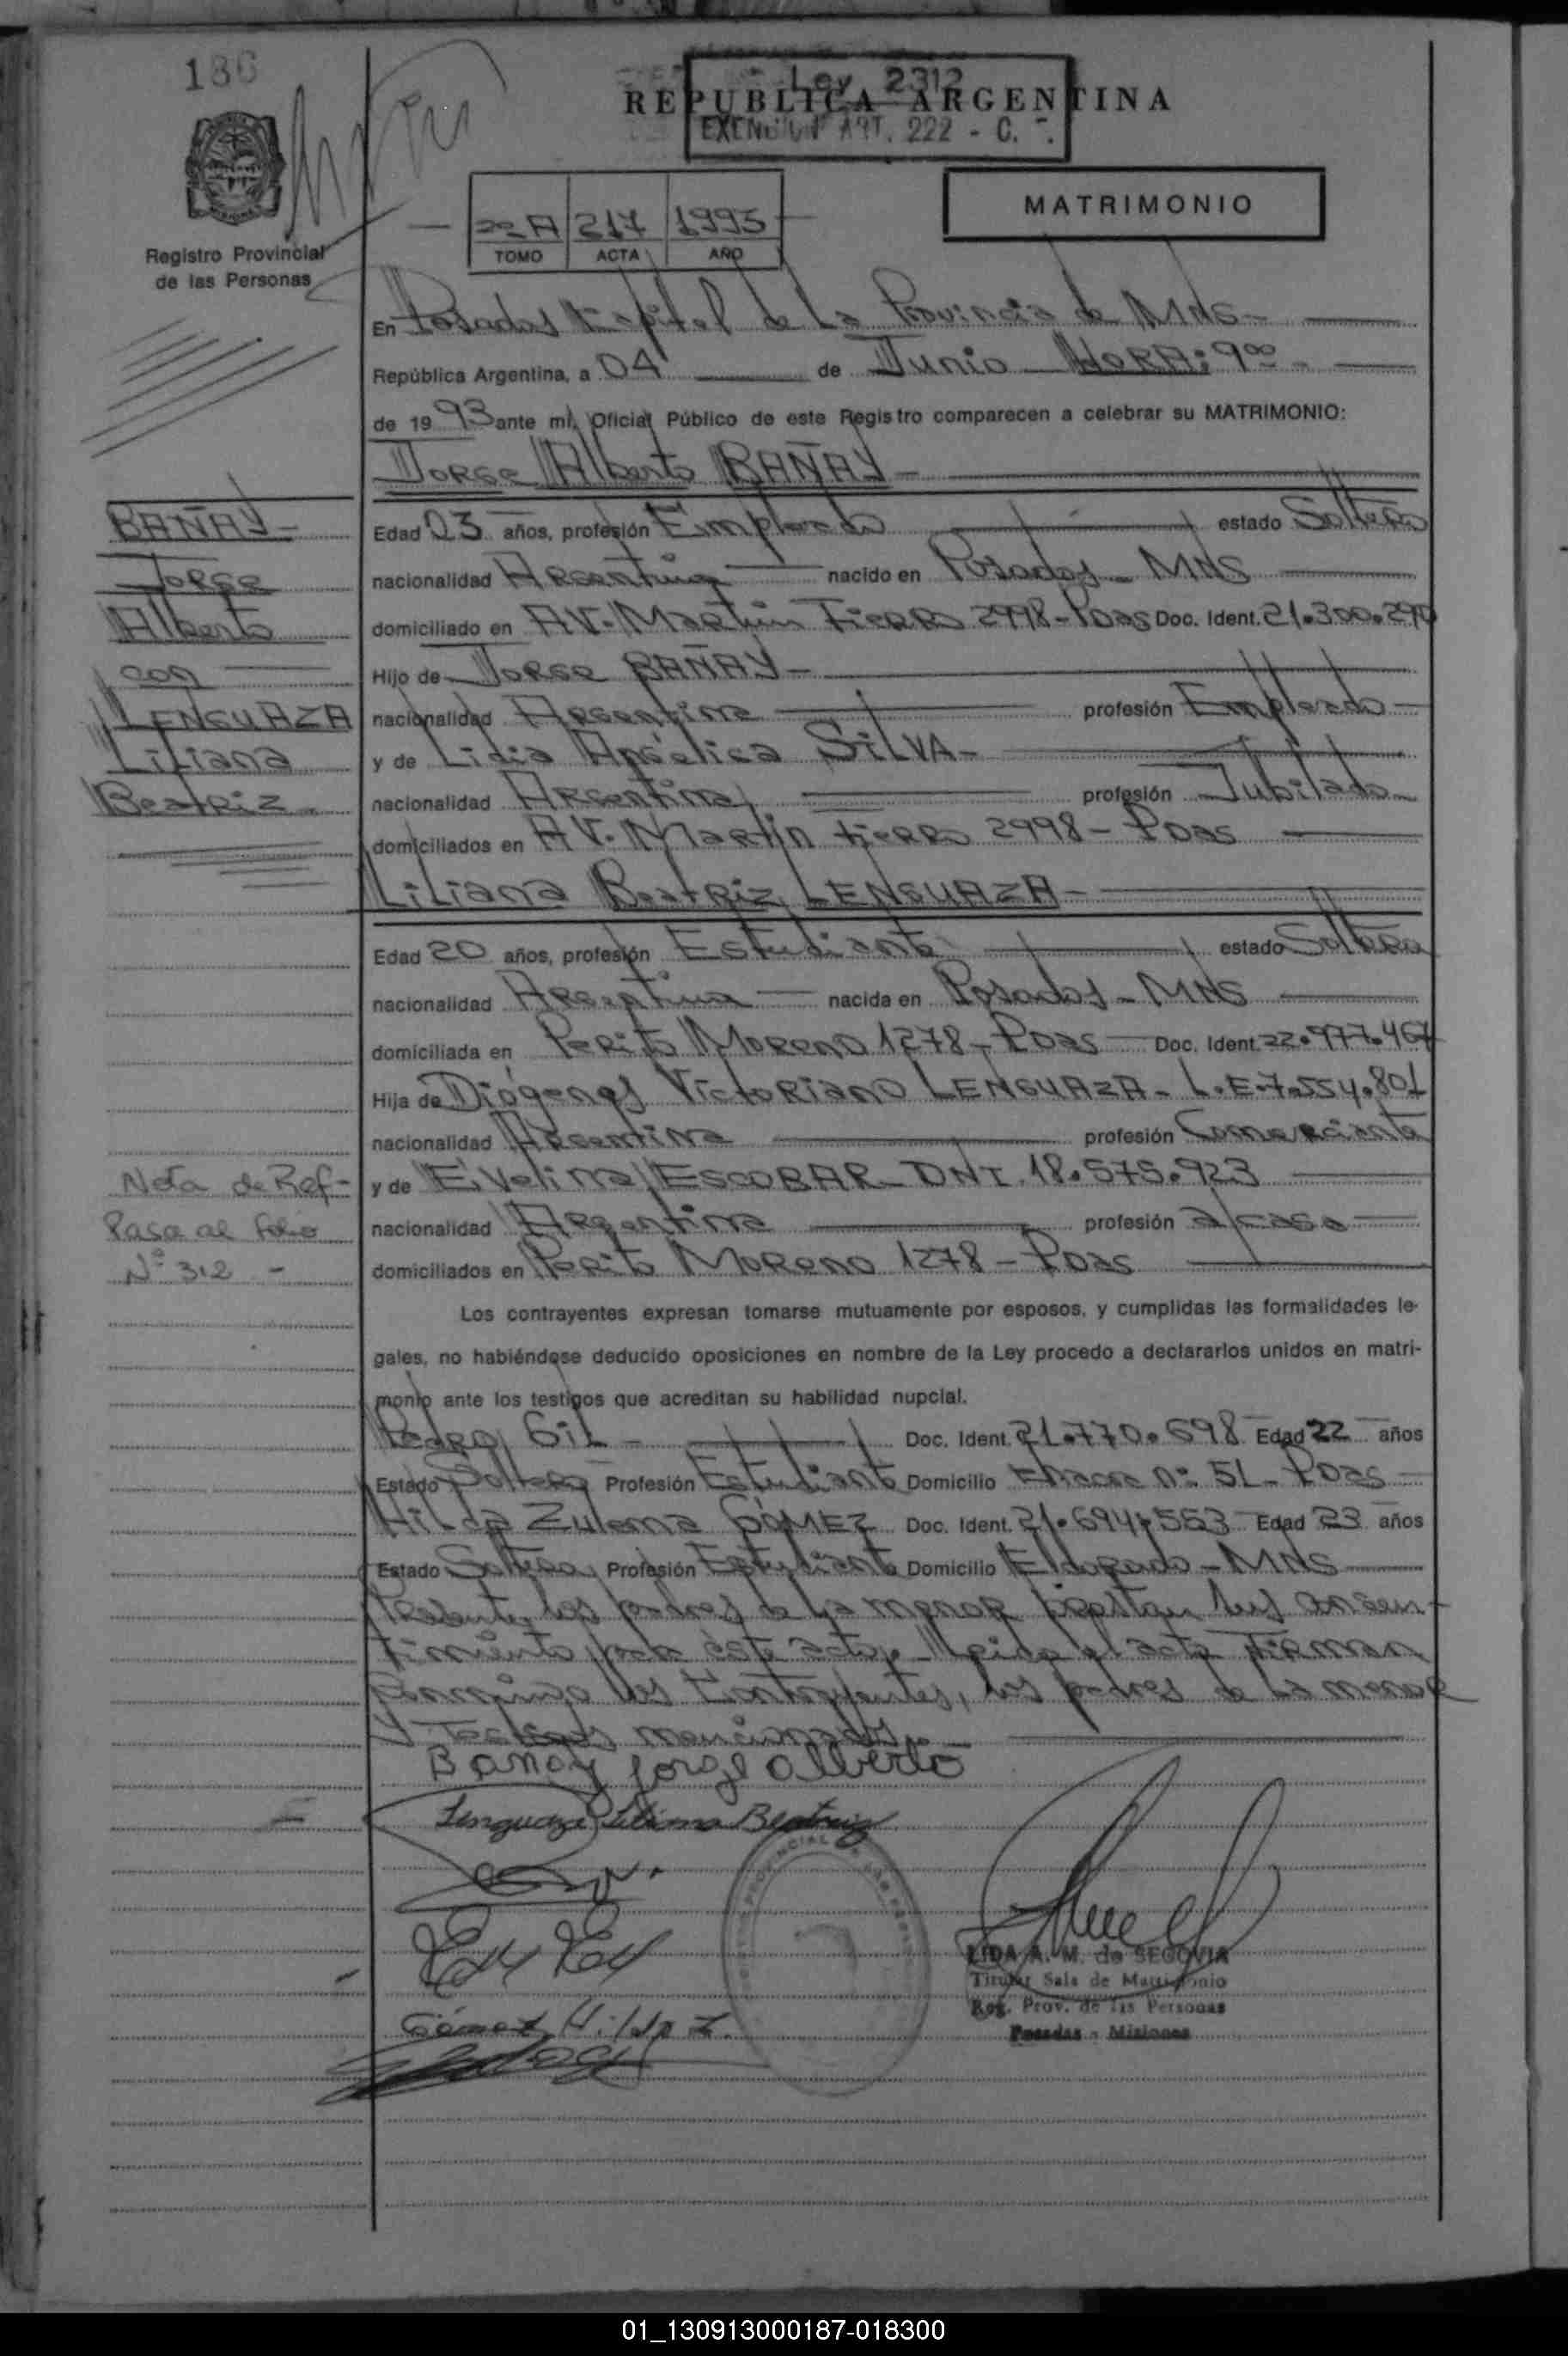 186
Ley 2312
REPUBLICA ARGENTINA
EXENCION ART. 222 - C.
MATRIMONIO
22 A 217 1993
TOMO ACTA AÑO
Registro Provincial
de las Personas
En Posadas Capital de La Provincia de MNS-
República Argentina, a 04 de Junio HORA: 9ºº -
de 1993 ante mí, Oficial Público de este Registro comparecen a celebrar su MATRIMONIO:
Jorge Alberto BAÑAY -
BAÑAY -
Jorge
Alberto
con
LENGUAZA
Liliana
Beatriz -
Edad 23 años, profesión Empleado estado Soltero
nacionalidad Argentina nacido en Posadas - MNS
domiciliado en AV. Martín Fierro 2998 - Pdas Doc. Ident. 21.300.290
Hijo de Jorge BAÑAY -
nacionalidad Argentina profesión Empleado -
y de Lidia Angélica SILVA -
nacionalidad Argentina profesión Jubilado -
domiciliados en AV. Martín Fierro 2998 - Pdas
Liliana Beatriz LENGUAZA -
Edad 20 años, profesión Estudiante estado Soltera
nacionalidad Argentina nacida en Posadas - MNS
domiciliada en Perito Moreno 1278 - Pdas Doc. Ident. 22.977.467
Hija de Diógenes Victoriano LENGUAZA - L.E. 7.554.801
nacionalidad Argentina profesión Comerciante
y de Evelina ESCOBAR - DNI. 18.575.923
nacionalidad Argentina profesión a/casa
domiciliados en Perito Moreno 1278 - Pdas
Nota de Ref-
Pasa al folio
Nº 312 -
Los contrayentes expresan tomarse mutuamente por esposos, y cumplidas las formalidades le-
gales, no habiéndose deducido oposiciones en nombre de la Ley procedo a declararlos unidos en matri-
monio ante los testigos que acreditan su habilidad nupcial.
Pedro Gil - Doc. Ident. 21.770.698 Edad 22 años
Estado Soltero Profesión Estudiante Domicilio nº 51 - Pdas
Hilda Zulema GÓMEZ Doc. Ident. 21.694.553 Edad 23 años
Estado Soltera Profesión Estudiante Domicilio Eldorado - MNS
Presente los padres de la menor prestan sus consen-
timiento para éste acto. Leída el acta Firman
conmigo los Contrayentes, los padres de la menor
y Testigos mencionados.
Bañay Jorge Alberto
Lenguaza Liliana Beatriz
Gómez Hilda Z.
LIDA A. M. de SEGOVIA
Titular Sala de Matrimonio
Reg. Prov. de las Personas
Posadas - Misiones
01_130913000187-018300